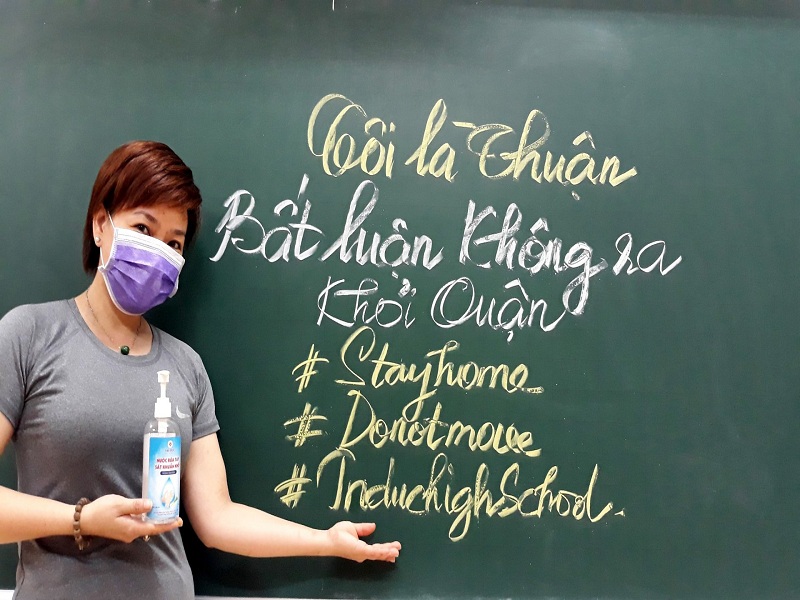 Tôi là Thuận
Bất luận Không ra
Khỏi Quận
# Stayhome
# Donotmove
# InduchighSchool.
NƯỚC RỬA TAY
SÁT KHUẨN